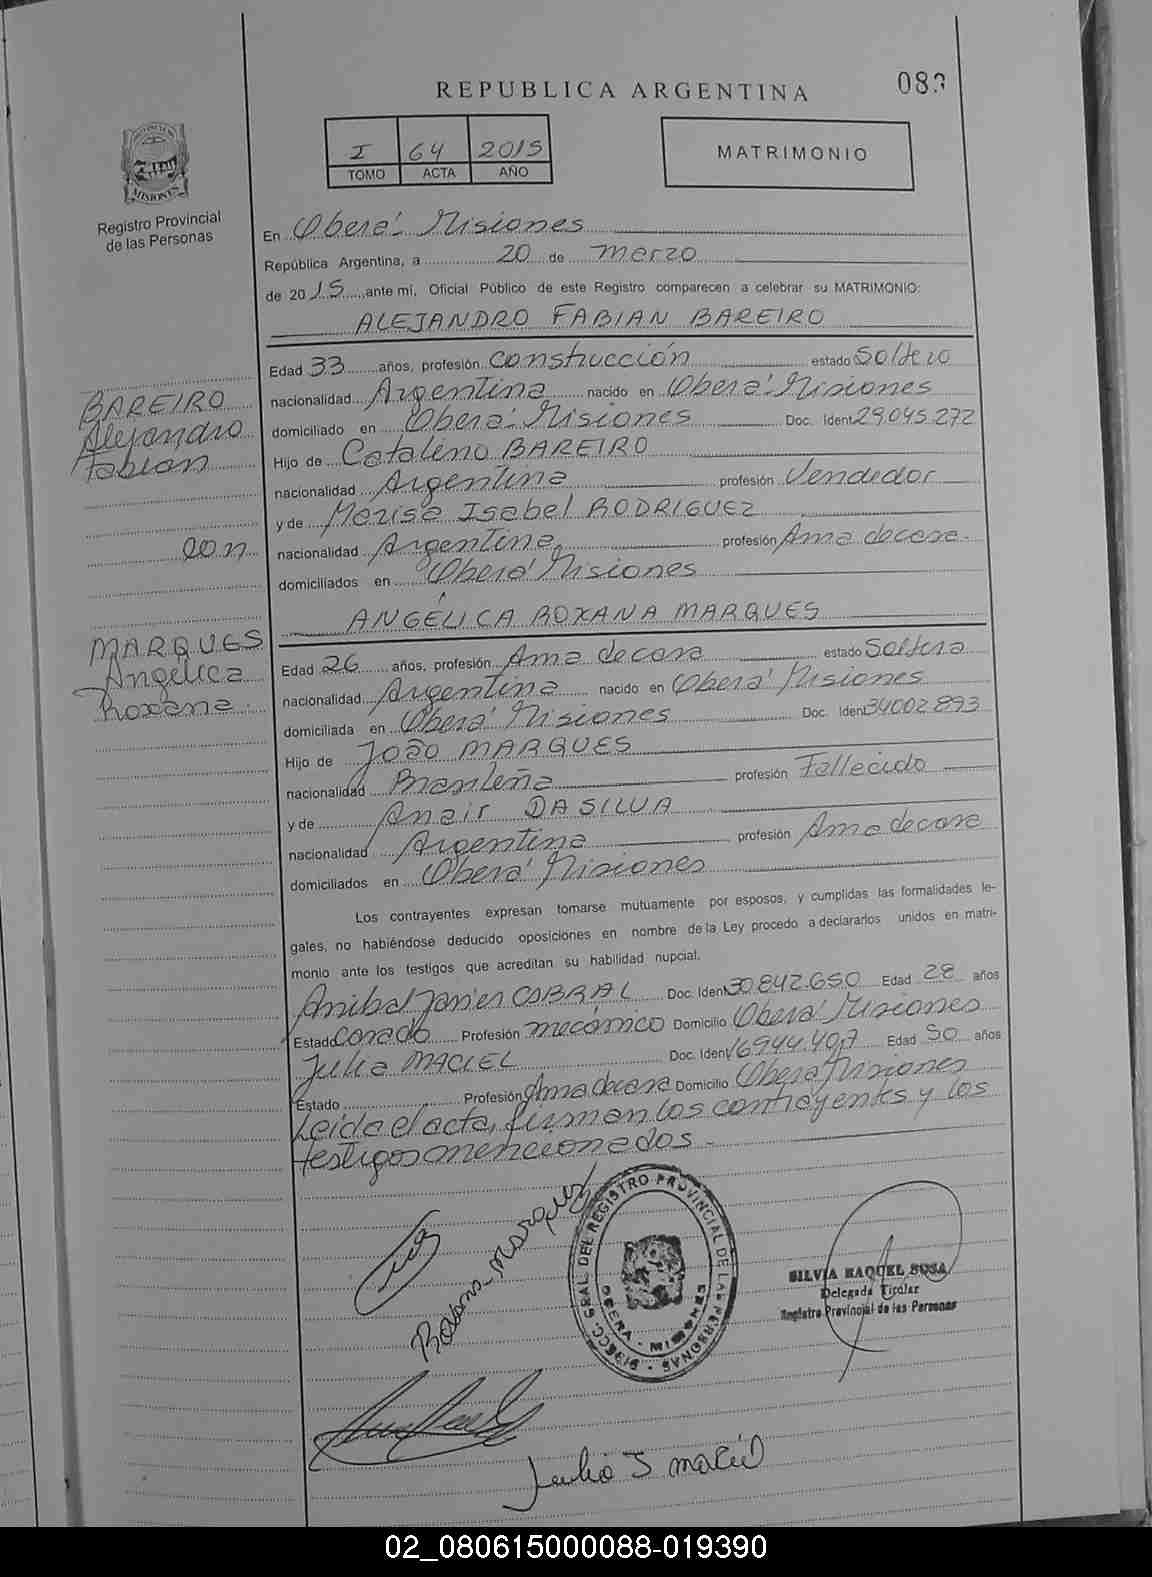 REPUBLICA ARGENTINA
083
I 64 2015
TOMO ACTA AÑO
MATRIMONIO
PROVINCIA DE
MISIONES
Registro Provincial
de las Personas
En Oberá Misiones
República Argentina, a 20 de marzo
de 2015, ante mi, Oficial Público de este Registro comparecen a celebrar su MATRIMONIO:
ALEJANDRO FABIAN BAREIRO
Edad 33 años, profesión construcción estado Soltero
nacionalidad Argentina nacido en Oberá Misiones
domiciliado en Oberá Misiones Doc. Ident 29.045.272
Hijo de Catalino BAREIRO
nacionalidad Argentina profesión Vendedor
y de Marisa Isabel RODRIGUEZ
nacionalidad Argentina profesión Ama de casa.
domiciliados en Oberá Misiones
BAREIRO
Alejandro
Fabian
con
MARQUES
Angélica
Roxana
ANGÉLICA ROXANA MARQUES
Edad 26 años, profesión Ama de casa estado Soltera
nacionalidad Argentina nacido en Oberá Misiones
domiciliada en Oberá Misiones Doc. Ident 34002893
Hijo de João MARQUES
nacionalidad Brasileña profesión Fallecido
y de Anair DA SILVA
nacionalidad Argentina profesión Ama de casa
domiciliados en Oberá Misiones
Los contrayentes expresan tomarse mutuamente por esposos, y cumplidas las formalidades le-
gales, no habiéndose deducido oposiciones en nombre de la Ley procedo a declararlos unidos en matri-
monio ante los testigos que acreditan su habilidad nupcial.
Anibal Javier CABRAL Doc. Ident 30.842.650 Edad 28 años
Estado Casado Profesión mecánico Domicilio Oberá Misiones
Julia MACIEL Doc. Ident 16944.407 Edad 50 años
Estado Profesión Ama de casa Domicilio Oberá Misiones
Leida el acta, firman los contrayentes y los
testigos mencionados.
Roxana Marquez
DIRECC. GRAL. DEL REGISTRO PROVINCIAL DE LAS PERSONAS
OBERA - MISIONES
SILVIA RAQUEL SOSA
Delegada Titular
Registro Provincial de las Personas
Julia J Maciel
02_080615000088-019390